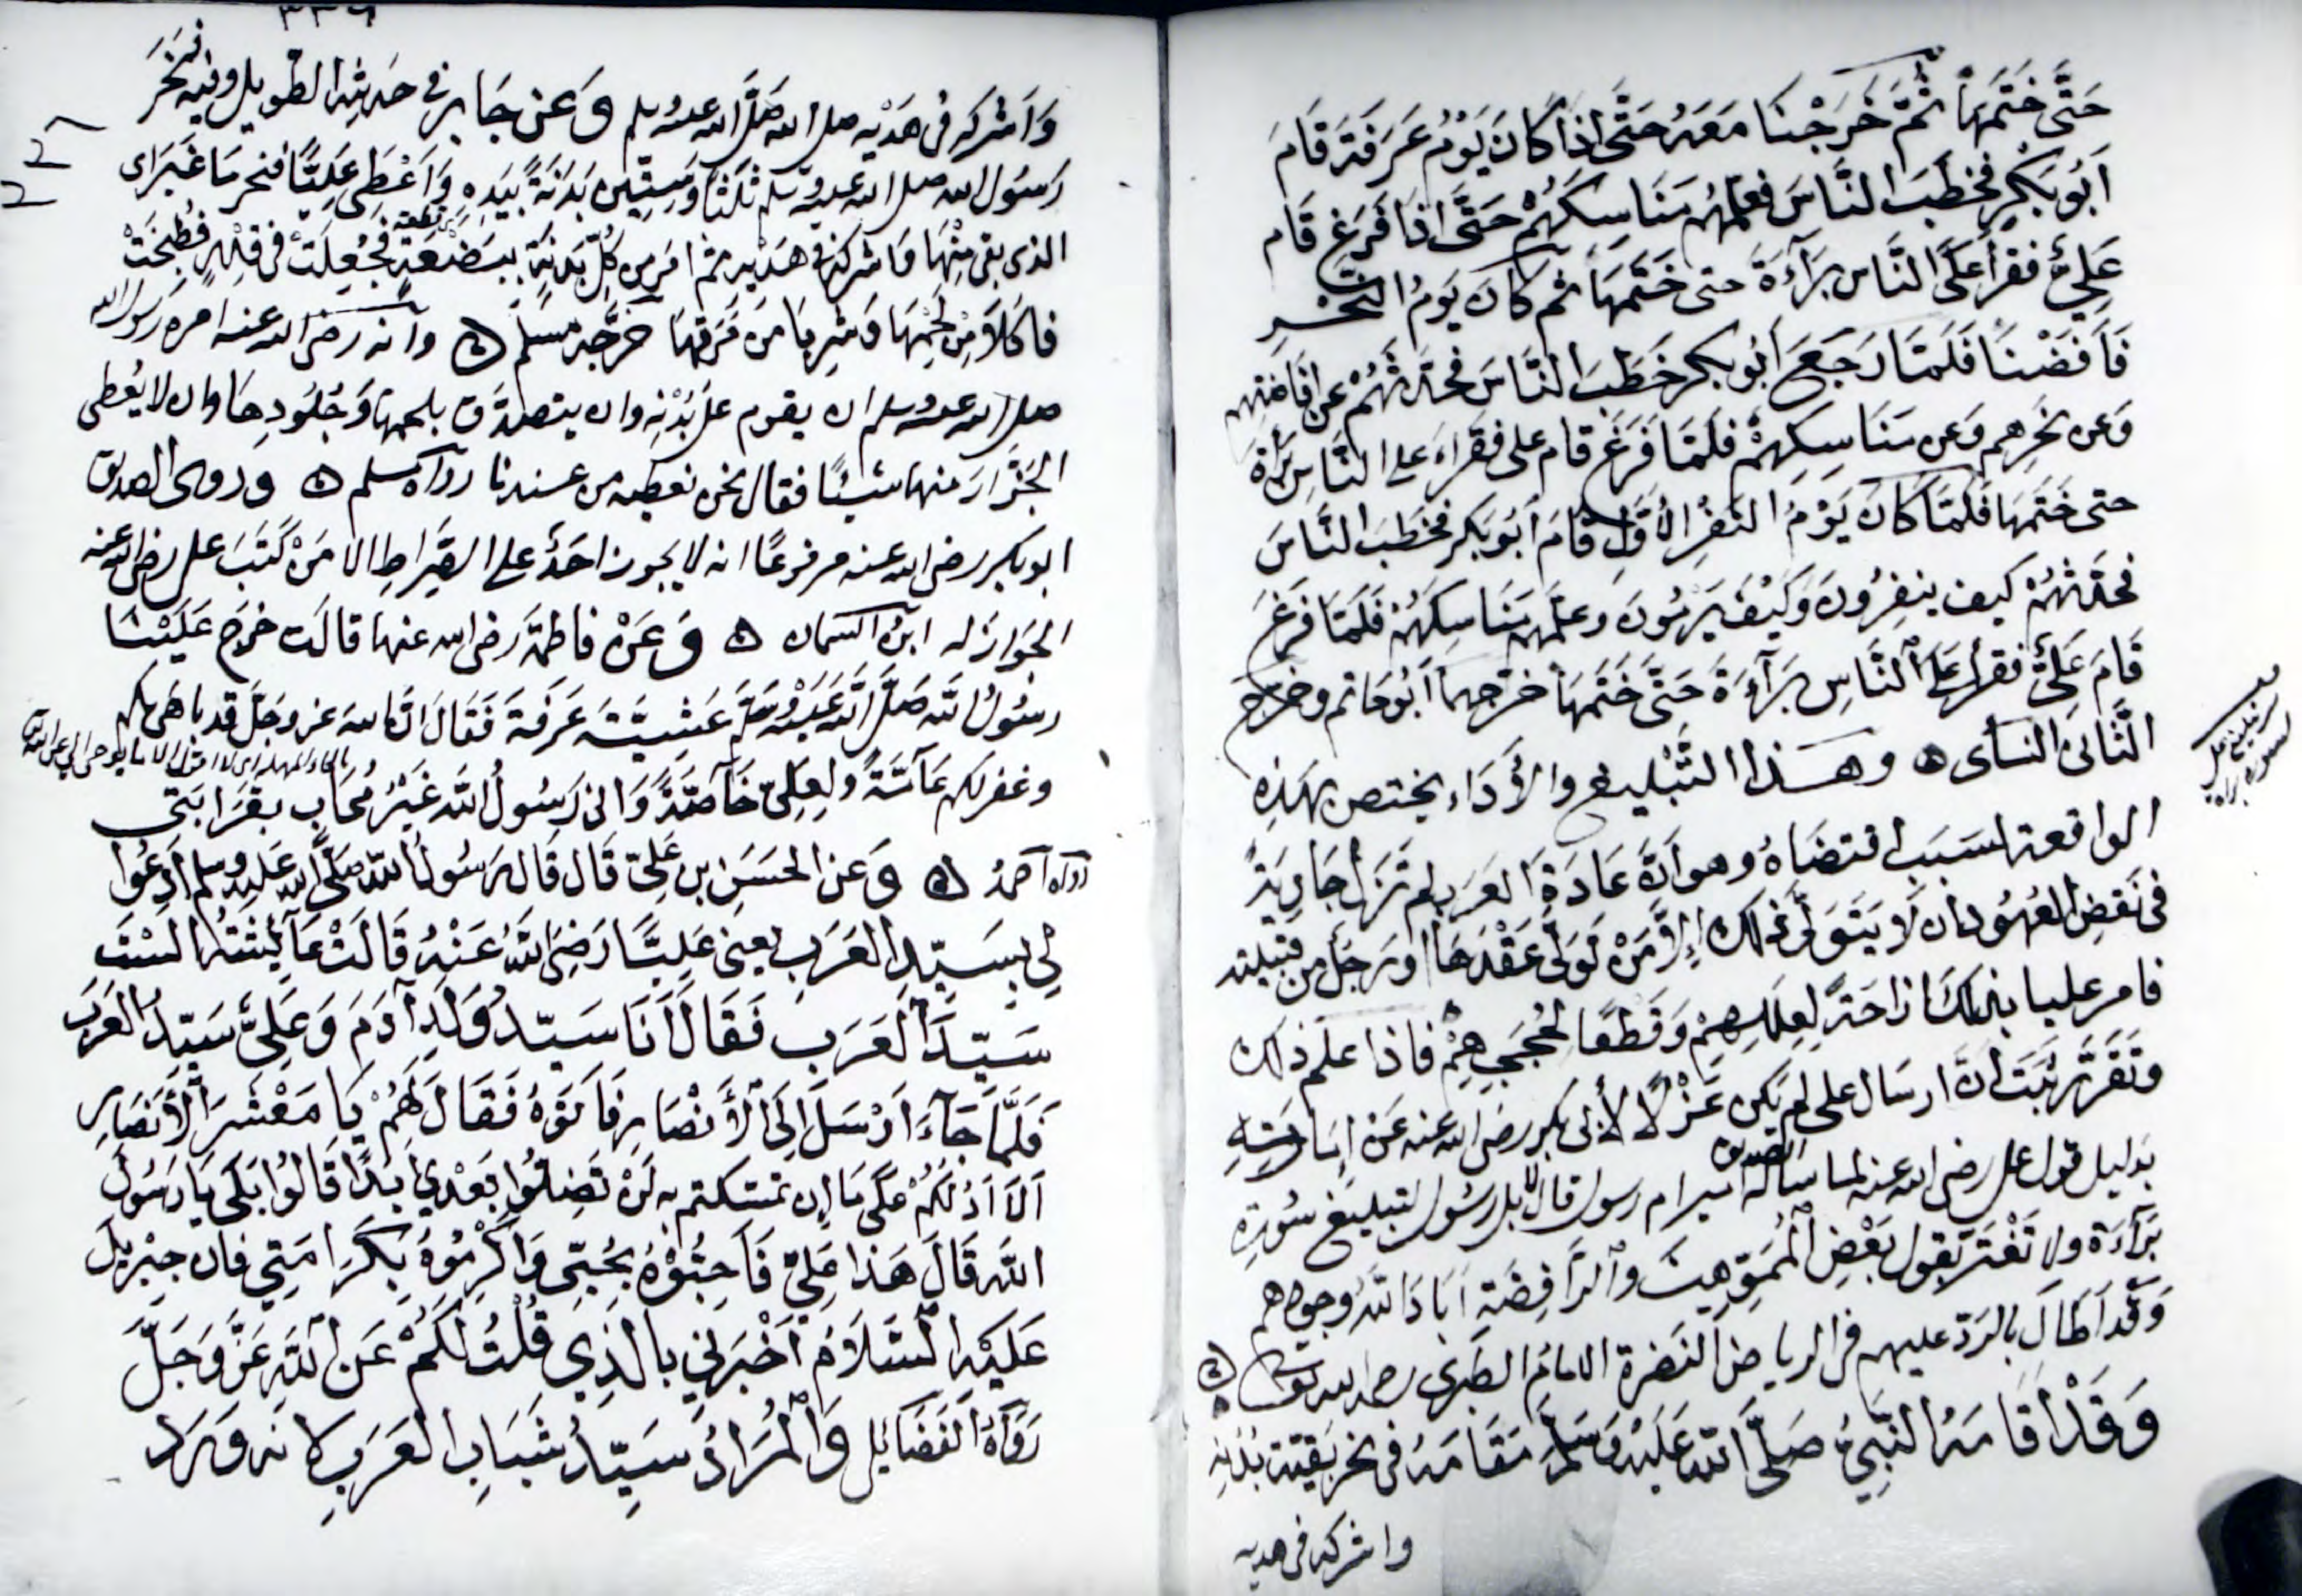 حَتَّى خَتَمَهَا ثُمَّ خَرَجْنَا مَعَهُ حَتَّى إِذَا كَانَ يَوْمُ عَرَفَةَ قَامَ
أَبُو بَكْرٍ فَخَطَبَ النَّاسَ فعلمهم مَنَاسِكَهُمْ حَتَّى اذَا فَرَغَ قَام
عَلِيٌّ فقرأ عَلَى النَّاس بَرَآءَةَ حتى خَتَمَهَا ثم كَانَ يَومُ النَّحْرِ
فَأَفَضْنَا فَلَمَّا رَجَعَ أَبُو بكر خَطَبَ النَّاسَ فحَدَّثَهُمْ عن افاضتهم
وَعن نحرِهم وَعن مَنَاسِكِهِمْ فلَمَّا فَرَغَ قام على فقَرَاءَ على النَّاسِ بَرَاءَةَ
حتى خَتَمَهَا فَلَمَّا كَانَ يَوْمُ النَّفْرِ الأَوَّلِ قَامَ أَبُو بَكر فخَطَبَ النَّاسَ
فحَدَّثَهُمْ كيف ينفِرُونَ وَكَيْفَ يَرْمُونَ وعلَّمهم مَنَاسِكَهُمْ فَلَمَّا فَرَغَ
قَامَ عَلِيٌّ فقرأ عَلَى النَّاسِ بَرَآءَةَ حَتَّى خَتَمَهَا خرّجهما أَبُو حاتم وخرّج
الثَّانى النسأى ۞ وهَذا التَّبْليغ والأَدَاء يختص بهَذِه
الواقعة لسَبَبٍ اقتضَاهُ وهو أنَّ عَادَةَ العَرَب لم تَزَل جَارِيَةً
فى نَقضِ العُهُود ان لا يَتَوَلَّى ذلك إلاَّ مَنْ تَوَلَّى عَقْدَهَا او رَجُل من قبيلته
فامر عليا بذلك ازاحَةً لعِلَلِهِمْ وَقَطعًا لحُجَجِهِمْ فاذا علم ذلك
وتَقَرَّرَ ثَبَتَ أنَّ ارسَال على لم يَكن عَزْلًا لأبى بكر رضى الله عنه عَنْ إمَارَتِهِ
بدليل قول على رضى الله عنه لما سأله الصديق أمير ام رسول قال لا بل رسُول لتبليغ سُورَةِ
بَرَآءَة ولا تَغْتَرَّ بقول بَعْضِ المُمَوِّهينَ والرَّافِضَة أبَادَ اللهُ وجوههم
وَقد أَطَالَ بالرّدّ عليهم فى الرياض النَضرة الامام الطبرى رحمه الله تعالى ۞
وَقَدْ أَقَامَهُ النَّبِيُّ صَلَّى اللهُ عَلَيْهِ وَسَلَّمَ مَقَامَهُ فى نحر بَقِيَّةِ بُدْنِهِ
واشركه فى هديه
تبليغ على
لسورة براءة
٣٣٦
وَأشركه فى هَدْيِه صلى الله عليه وسلم وَعن جَابر فى حَدِيثِه الطّويل وفيه فنَحَرَ
رَسُول الله صلى الله عليه وسلم ثَلَثًا وَسِتِّين بَدَنَةً بيَدِه وَأَعْطَى عَلِيًّا فنحر مَا غَبَرَ اى
الذى بقى مِنْهَا وَاشركه فى هَدْيِه ثم امَر من كُلِّ بَدَنَةٍ ببَضْعَةٍ فجُعِلَتْ فى قِدْرٍ فطُبِخَتْ
قطعة
فاكَلا مِنْ لَحْمِهَا وَشرِبا مِنْ مَرَقِهَا خَرَّجَهُ مسلم ۞ وأنه رضى الله عنه امره رسول الله
صلى الله عليه وسلم ان يقوم على بُدْنِه وان يتصدَّق بلحمها وَجُلُودِهَا وان لا يُعْطى
الجَزَّارَ منها شَيْئًا فقال نحن نعطيه من عندنا رواه مسلم ۞ وروى الصديق
ابو بكر رضى الله عنه مرفوعًا انه لا يجوز احَدٌ على الصِّرَاطِ الا مَنْ كَتَبَ على رضى الله عنه
الجَوازَ له ابنُ السمان ۞ وَعَنْ فاطمَة رضى الله عنها قالَت خرَج عَلَيْنَا
رسُولُ الله صَلَّى اللهُ عَلَيْهِ وَسَلَّمَ عَشِيَّةَ عَرَفَةَ فَقَالَ إنَّ الله عز وجَلَّ قد باهَى بكم
وغفر لكم عَآمَّةً ولِعَلِيّ خَآصَّةً وَانى رَسُولُ اللهِ غَيْرُ مُحَابٍ بقَرَابَتى
رواه أحمدُ ۞ وَعن الحَسَن بن عَلِيّ قَال قَالَ رَسُولُ اللهِ صَلَّى الله عَلَيهِ وسلم أدْعُوا
لِي بِسَيِّدِ العَرَبِ يعنى عَلِيًّا رَضِىَ اللهُ عَنْهُ قَالَتْ عَآئِشَةُ أَلَسْتَ
سَيِّدَ العَرَبِ فَقَالَ أَنَا سَيِّدُ وَلَدِ آدَمَ وَعَلِيٌّ سَيِّدُ العَرَبِ
فَلَمَّا جَآءَ أَرْسَلَ إِلَى الأَنْصَارِ فَأَتَوْهُ فَقَالَ لَهُمْ يَا مَعْشَرَ الأَنْصَارِ
أَلا أَدُلُّكُمْ عَلَى مَا إن تمسّكتم بِهِ لَنْ تَضِلُّوا بَعْدِي أبَدًا قَالُوا بَلَى يَا رَسُولَ
اللهِ قَالَ هَذا عَلِيٌّ فَأَحِبُّوهُ بِحُبِّي وَأَكْرِمُوهُ بِكَرَامَتِي فان جِبْرِيلَ
عَلَيْهِ السَّلاَمُ أَخْبَرَنِي بِالذِي قُلْتُ لَكُمْ عَنِ اللهِ عَزَّ وَجَلَّ
رَوَاهُ الفَضَائِلى وَالْمُرَادُ سَيِّدُ شَبَابِ العَرَبِ لانه وَرَد